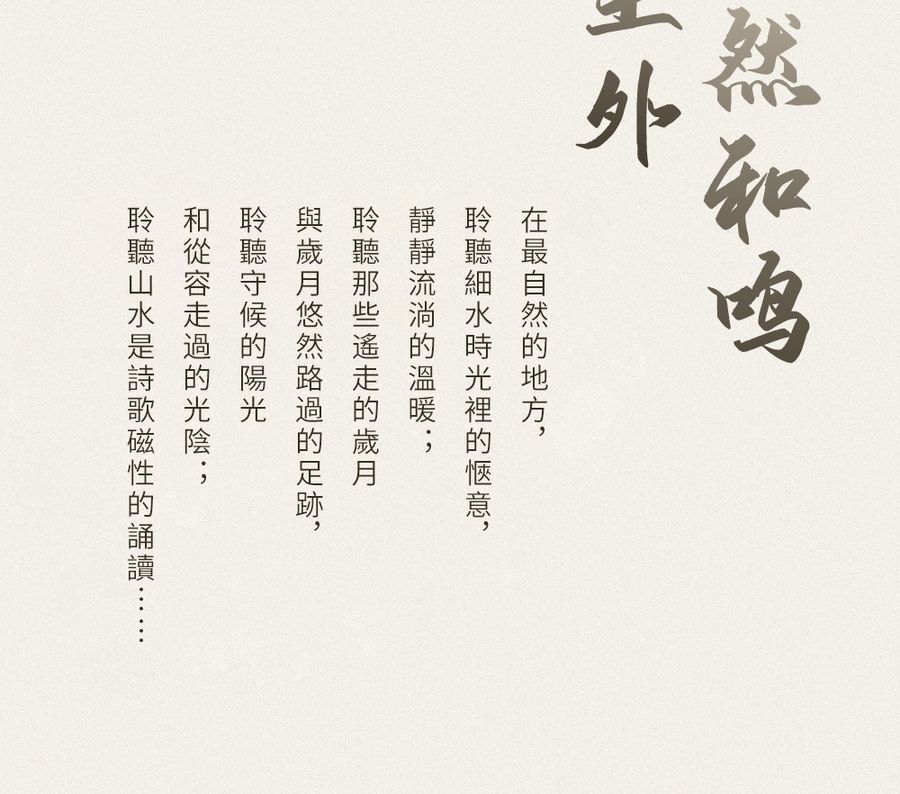 然和鸣
外
在最自然的地方，
聆聽細水時光裡的愜意，
靜靜流淌的溫暖；
聆聽那些遙走的歲月
與歲月悠然路過的足跡，
聆聽守候的陽光
和從容走過的光陰；
聆聽山水是詩歌磁性的誦讀……